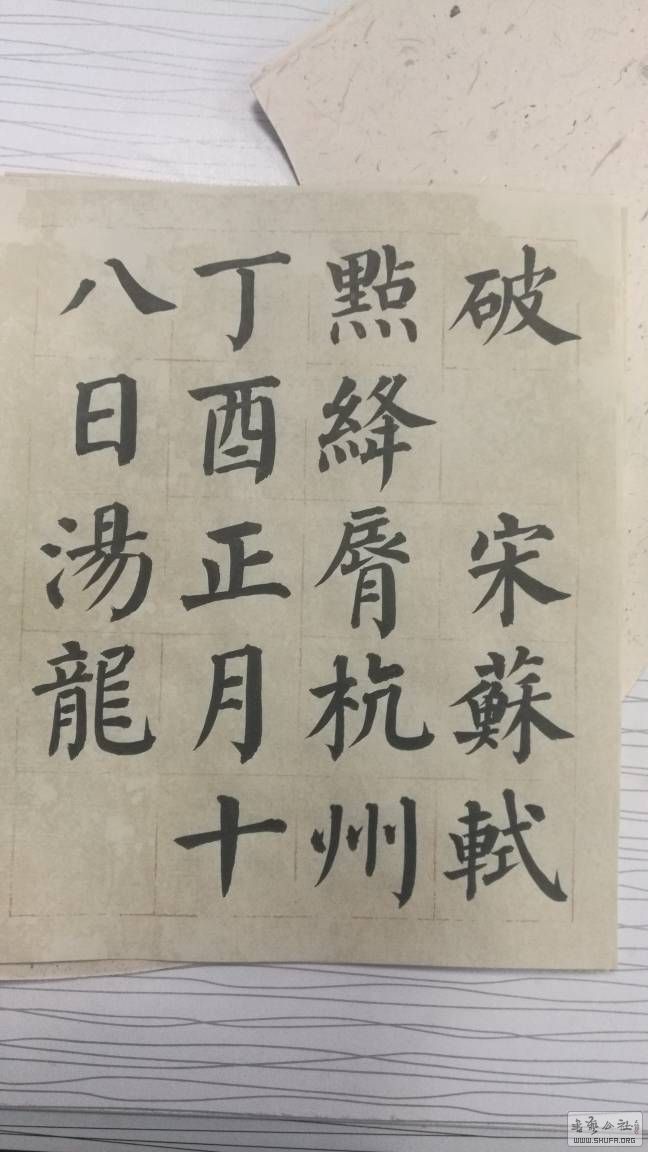 破 宋蘇軾
點絳脣杭州
丁酉正月十
八日湯龍
WWW.SHUFA.ORG